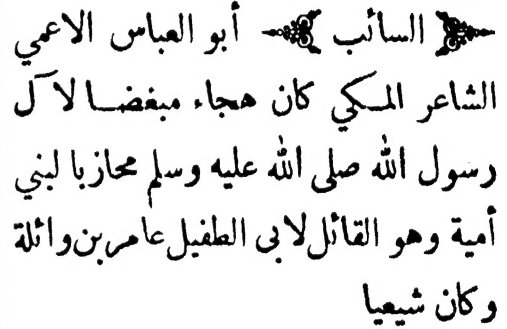 السائب أبو العباس الاعمي
الشاعر المكي كان هجاء مبغضا لآل
رسول الله صلى الله عليه وسلم محازبا لبني
أمية وهو القائل لابى الطفيل عامر بن وائلة
وكان شيعيا